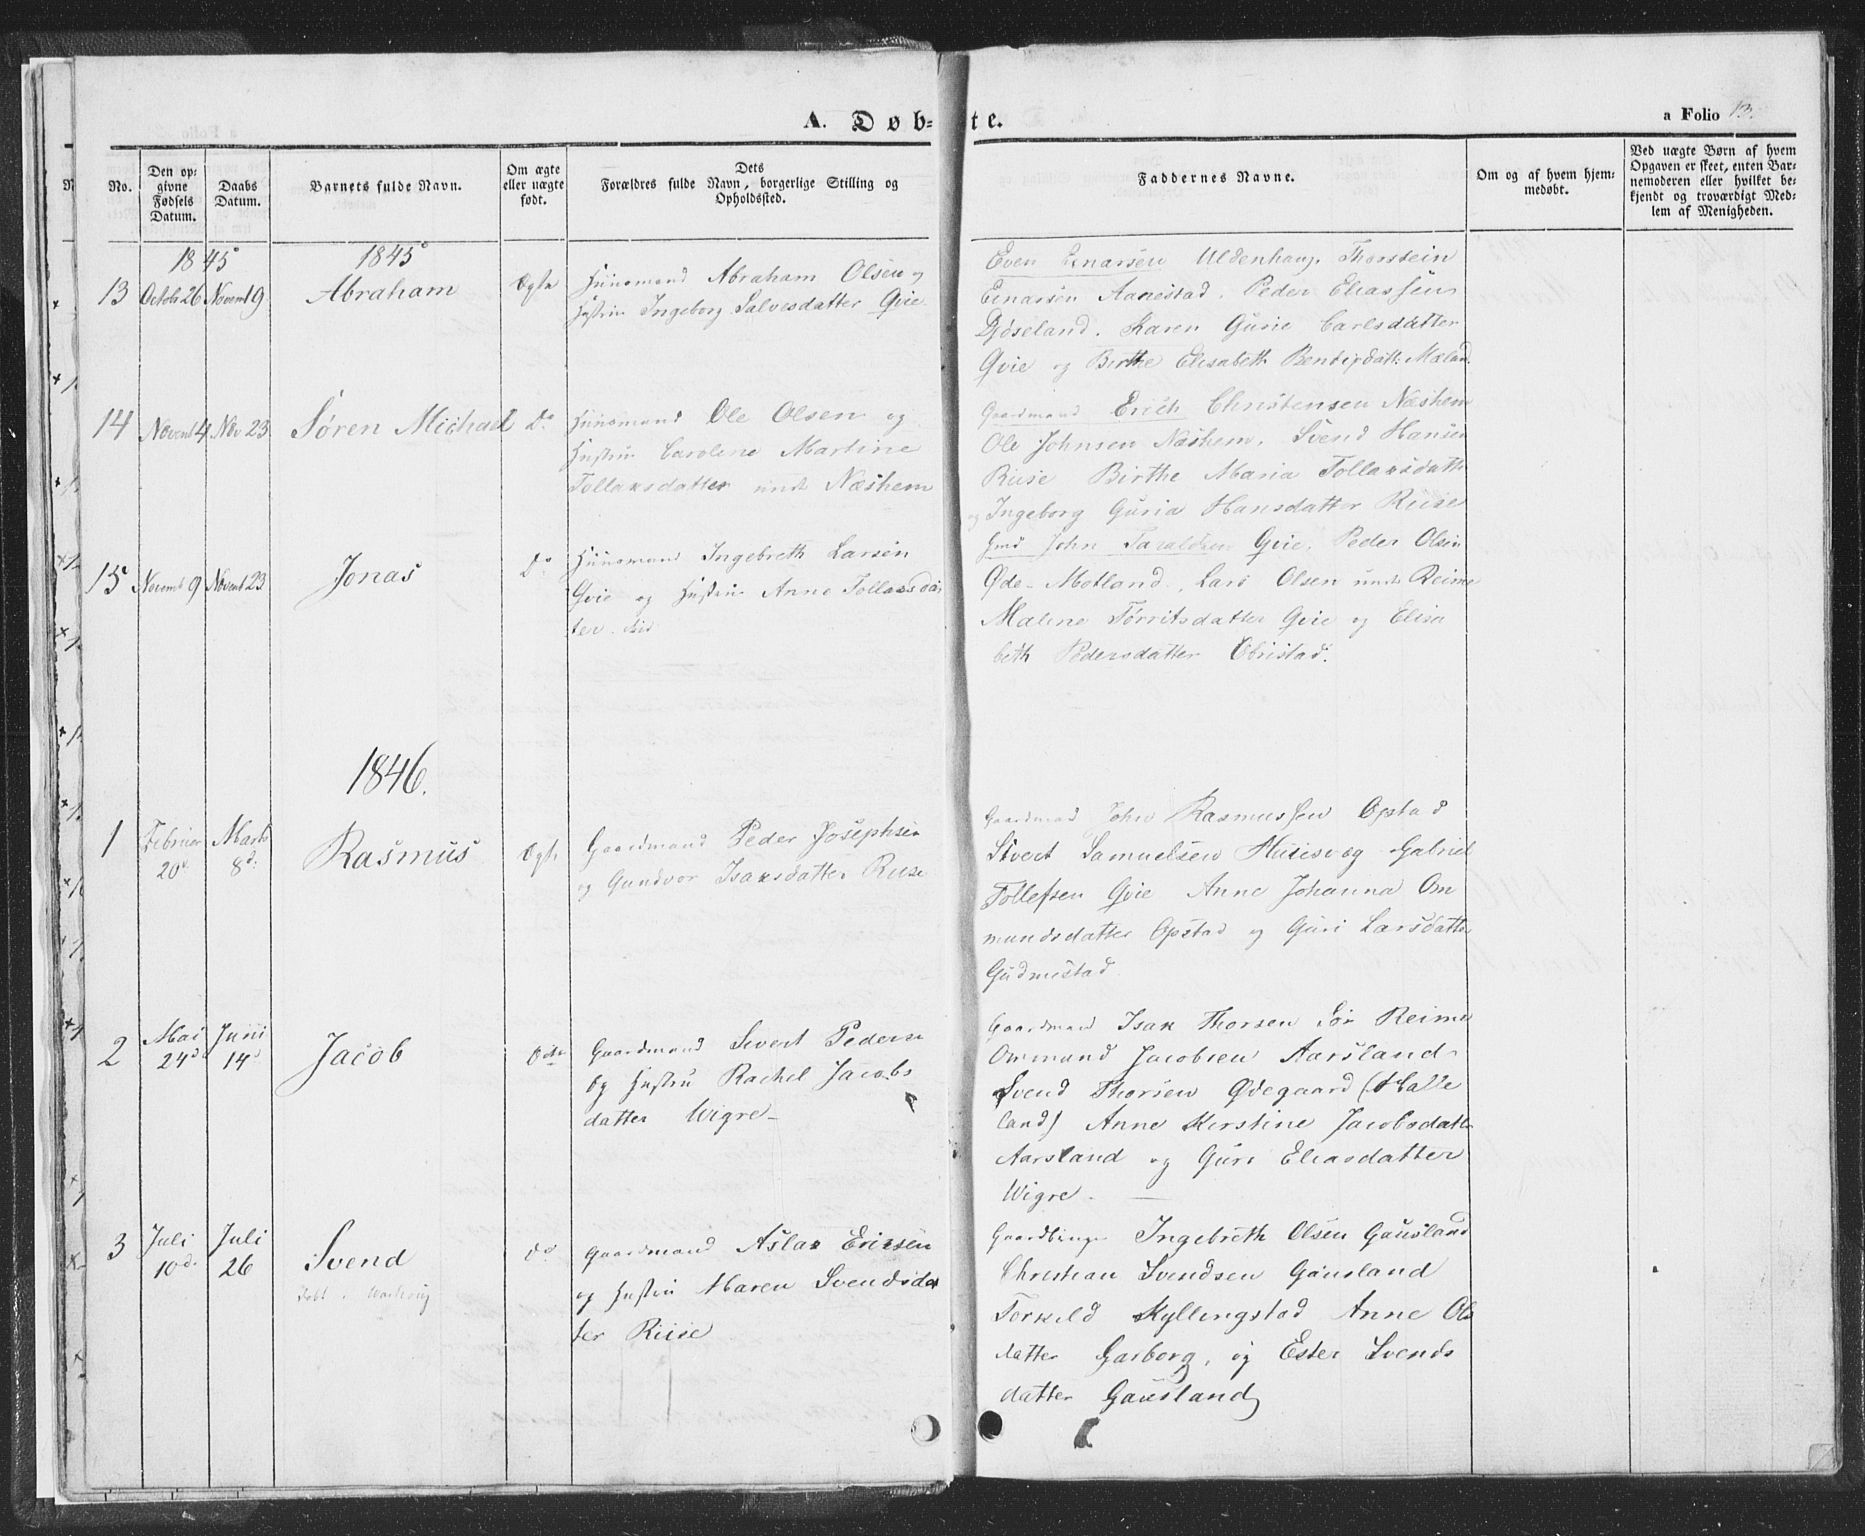 A. Døb= te.
a Folio 13.
No.
Den op-
givne
Fødsels
Datum.
Daabs
Datum.
Barnets fulde Navn.
Om ægte
eller uægte
født.
Dets
Forældres fulde Navn, borgerlige Stilling og
Opholdssted.
Faddernes Navne.
Om og af hvem hjem-
medøbt.
Ved uægte Børn af hvem
Opgaven er skeet, enten Bar-
nemoderen eller hvilket be-
kjendt og troværdigt Med-
lem af Menigheden.
1845 1845
13 Octobr 26 Novemb 9 Abraham Ægte
Huusmand Abraham Olsen og
Hustrue Ingeborg Salvesdatter Qvie
Even Enarsen Uldenhaug. Thorstein
Enarsen Aanestad. Peder Eliassen
Bjöseland. Karen Gurie Carlsdatter
Qvie og Birthe Elisabeth Mæland.
14 Novemb 4 Nov 23 Søren Michael Do
Huusmand Ole Olsen og
Hustrue Caroline Martine
Tollaksdatter und Næshem
Gaardmand Erich Christensen Næshem
Ole Johnsen Næshem. Svend Hansen
Riise Birthe Maria Tollaksdatt
og Ingeborg Guria Hansdatter Riise
15 Novemb 9 Novemb 23 Jonas Do
Huusmand Ingebreth Larsen
Qvie og Hustrue Anne Tollaksdat
ter. ibid
Gmd John Taraldsen Qvie. Peder Olsen
Øde-Motland. Lars Olsen unde Reime
Malene Tørrisdatter Qvie og Elisa
beth Pedersdatter Obristad.
1846.
1 Februar 20d Marts 8d. Rasmus Ægte
Gaardmand Peder Josephsen
og Gundvor Isaksdatter Riise
Gaardmand John Rasmussen Opstad
Sivert Samuelsen Husevæg Gabriel
Tollefsen Qvie Anne Johanna Om
mundsdatter Opstad og Guri Larsdatter
Gudmestad
2 Mai 24d Juni 14d Jacob
Gaardmand Sivert Peders
og Hustru Rachel Jacobs
datter Wigre
Gaardmand Isak Thorsen Sör Reime
Ommund Jacobsen Aarsland
Svend Thorsen Ødegaard (Halle
land) Anne Kirstine Jacobsdatt
Aarsland og Guri Eliasdatter
Wigre.
3 Juli 10d. Juli 26 Svend Do
Døbt i
Gaardmand Aslak Ericsen
og Hustru Maren Svendsdat
ter Riise
Ingebreth Olsen Gausland
Christian Svendsen Gausland
Torkild Kyllingstad Anne Ols
datter Garborg, og Ester Svends
datter Gausland